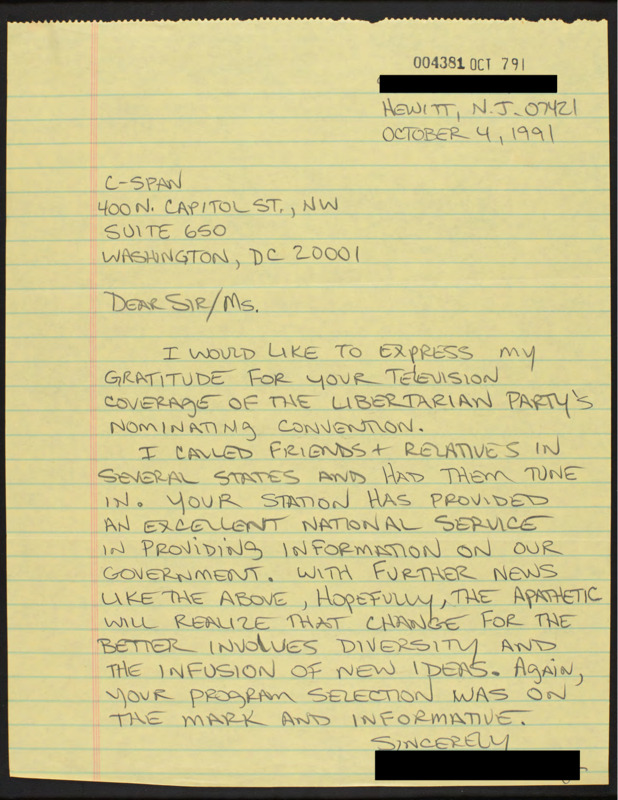 004381 OCT 791
HEWITT, N.J. 07421
OCTOBER 4, 1991
C-SPAN
400 N. CAPITOL ST., NW
SUITE 650
WASHINGTON, DC 20001
DEAR SIR/MS.
I WOULD LIKE TO EXPRESS MY
GRATITUDE FOR YOUR TELEVISION
COVERAGE OF THE LIBERTARIAN PARTY'S
NOMINATING CONVENTION.
I CALLED FRIENDS + RELATIVES IN
SEVERAL STATES AND HAD THEM TUNE
IN. YOUR STATION HAS PROVIDED
AN EXCELLENT NATIONAL SERVICE
IN PROVIDING INFORMATION ON OUR
GOVERNMENT. WITH FURTHER NEWS
LIKE THE ABOVE, HOPEFULLY, THE APATHETIC
WILL REALIZE THAT CHANGE FOR THE
BETTER INVOLVES DIVERSITY AND
THE INFUSION OF NEW IDEAS. AGAIN,
YOUR PROGRAM SELECTION WAS ON
THE MARK AND INFORMATIVE.
SINCERELY